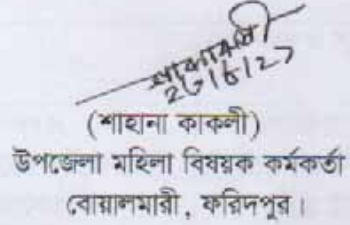 (শাহানা কাকলী)
উপজেলা মহিলা বিষয়ক কর্মকর্তা
বোয়ালমারী, ফরিদপুর।